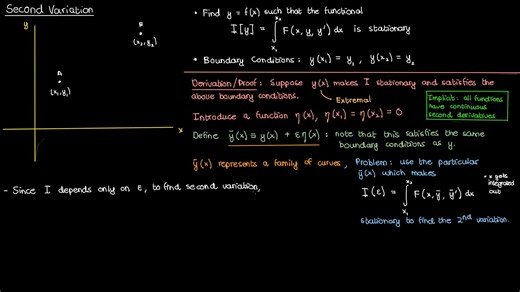 Second Variation
y
B
(x₂, y₂)
A
(x₁, y₁)
x
• Find y = f(x) such that the functional
I[y] = ∫ₓ₁ˣ² F(x, y, y') dx is stationary
• Boundary Conditions: y(x₁) = y₁, y(x₂) = y₂
Derivation/Proof: Suppose y(x) makes I stationary and satisfies the
above boundary conditions.
Extremal
Introduce a function η(x), η(x₁) = η(x₂) = 0
Implicit: all functions
have continuous
second derivatives
Define ȳ(x) ≡ y(x) + εη(x) : note that this satisfies the same
boundary conditions as y.
ȳ(x) represents a family of curves,
Problem: use the particular
ȳ(x) which makes
I(ε) = ∫ₓ₁ˣ² F(x, ȳ, ȳ') dx
• x gets
integrated
out
stationary to find the 2nd variation.
- Since I depends only on ε, to find second variation,